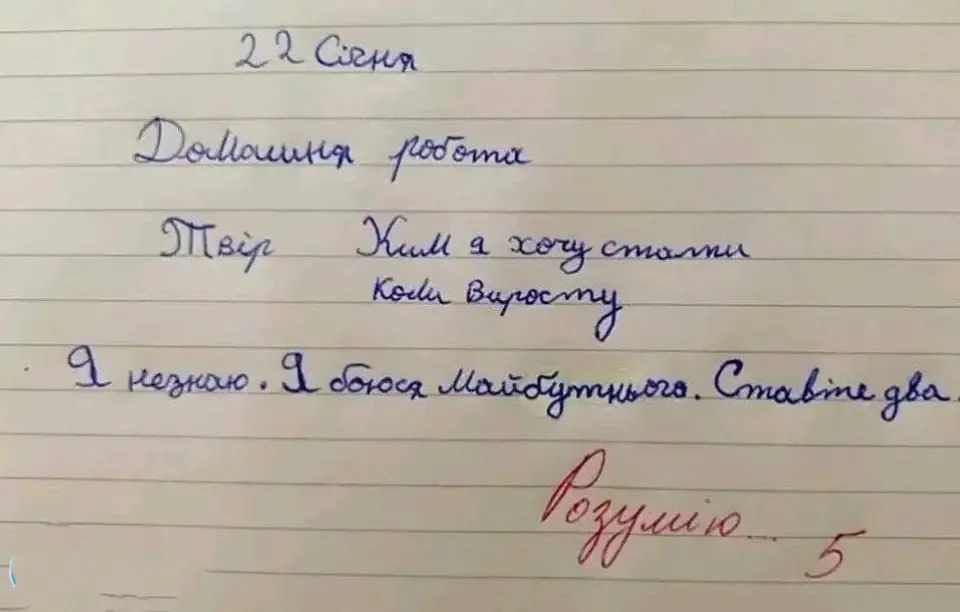 22 Січня
Домашня робота
Твір Ким я хочу стати
коли виросту
Я незнаю. Я боюся майбутнього. Ставте два.
Розумію... 5